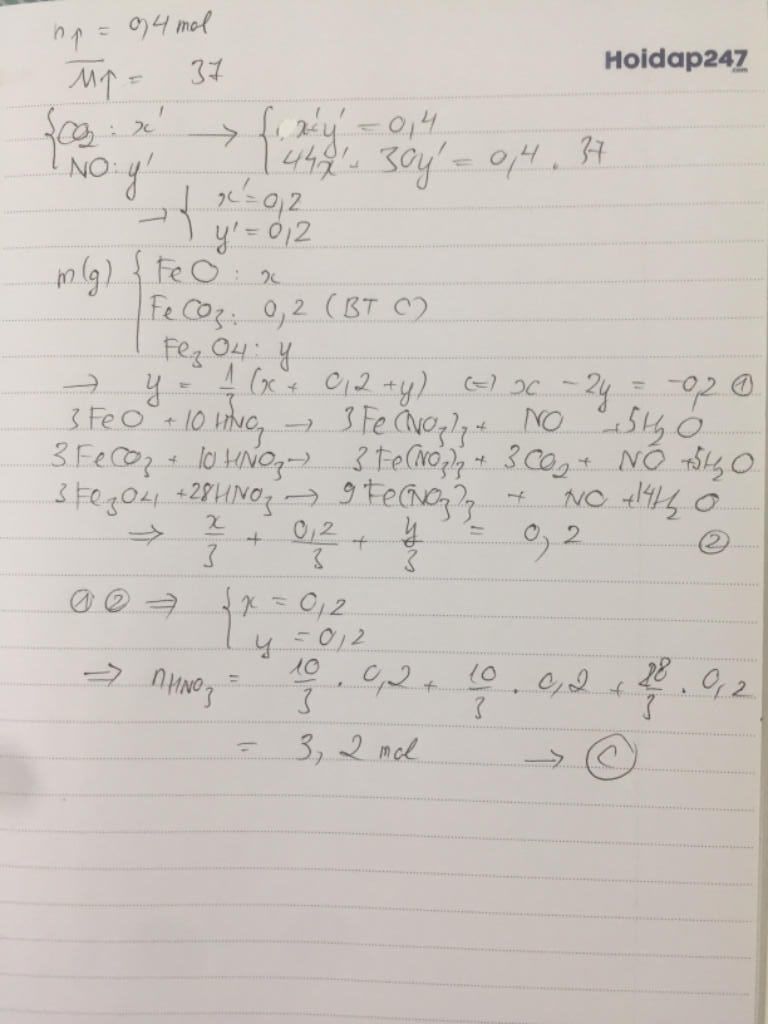 n↑ = 0,4 mol
Hoidap247
.com
M̅↑ = 37
{ CO2 : x' → { x'+y' = 0,4
NO : y' 44x' + 30y' = 0,4 . 37
→ { x' = 0,2
y' = 0,2
m(g) { FeO : x
FeCO3 : 0,2 (BT C)
Fe3O4 : y
→ y = 1/3 (x + 0,2 + y) <=> x - 2y = -0,2 ①
3FeO + 10HNO3 → 3Fe(NO3)3 + NO + 5H2O
3FeCO3 + 10HNO3 → 3Fe(NO3)3 + 3CO2 + NO + 5H2O
3Fe3O4 + 28HNO3 → 9Fe(NO3)3 + NO + 14H2O
⇒ x/3 + 0,2/3 + y/3 = 0,2 ②
① ② ⇒ { x = 0,2
y = 0,2
⇒ nHNO3 = 10/3 . 0,2 + 10/3 . 0,2 + 28/3 . 0,2
= 3,2 mol → Ⓒ